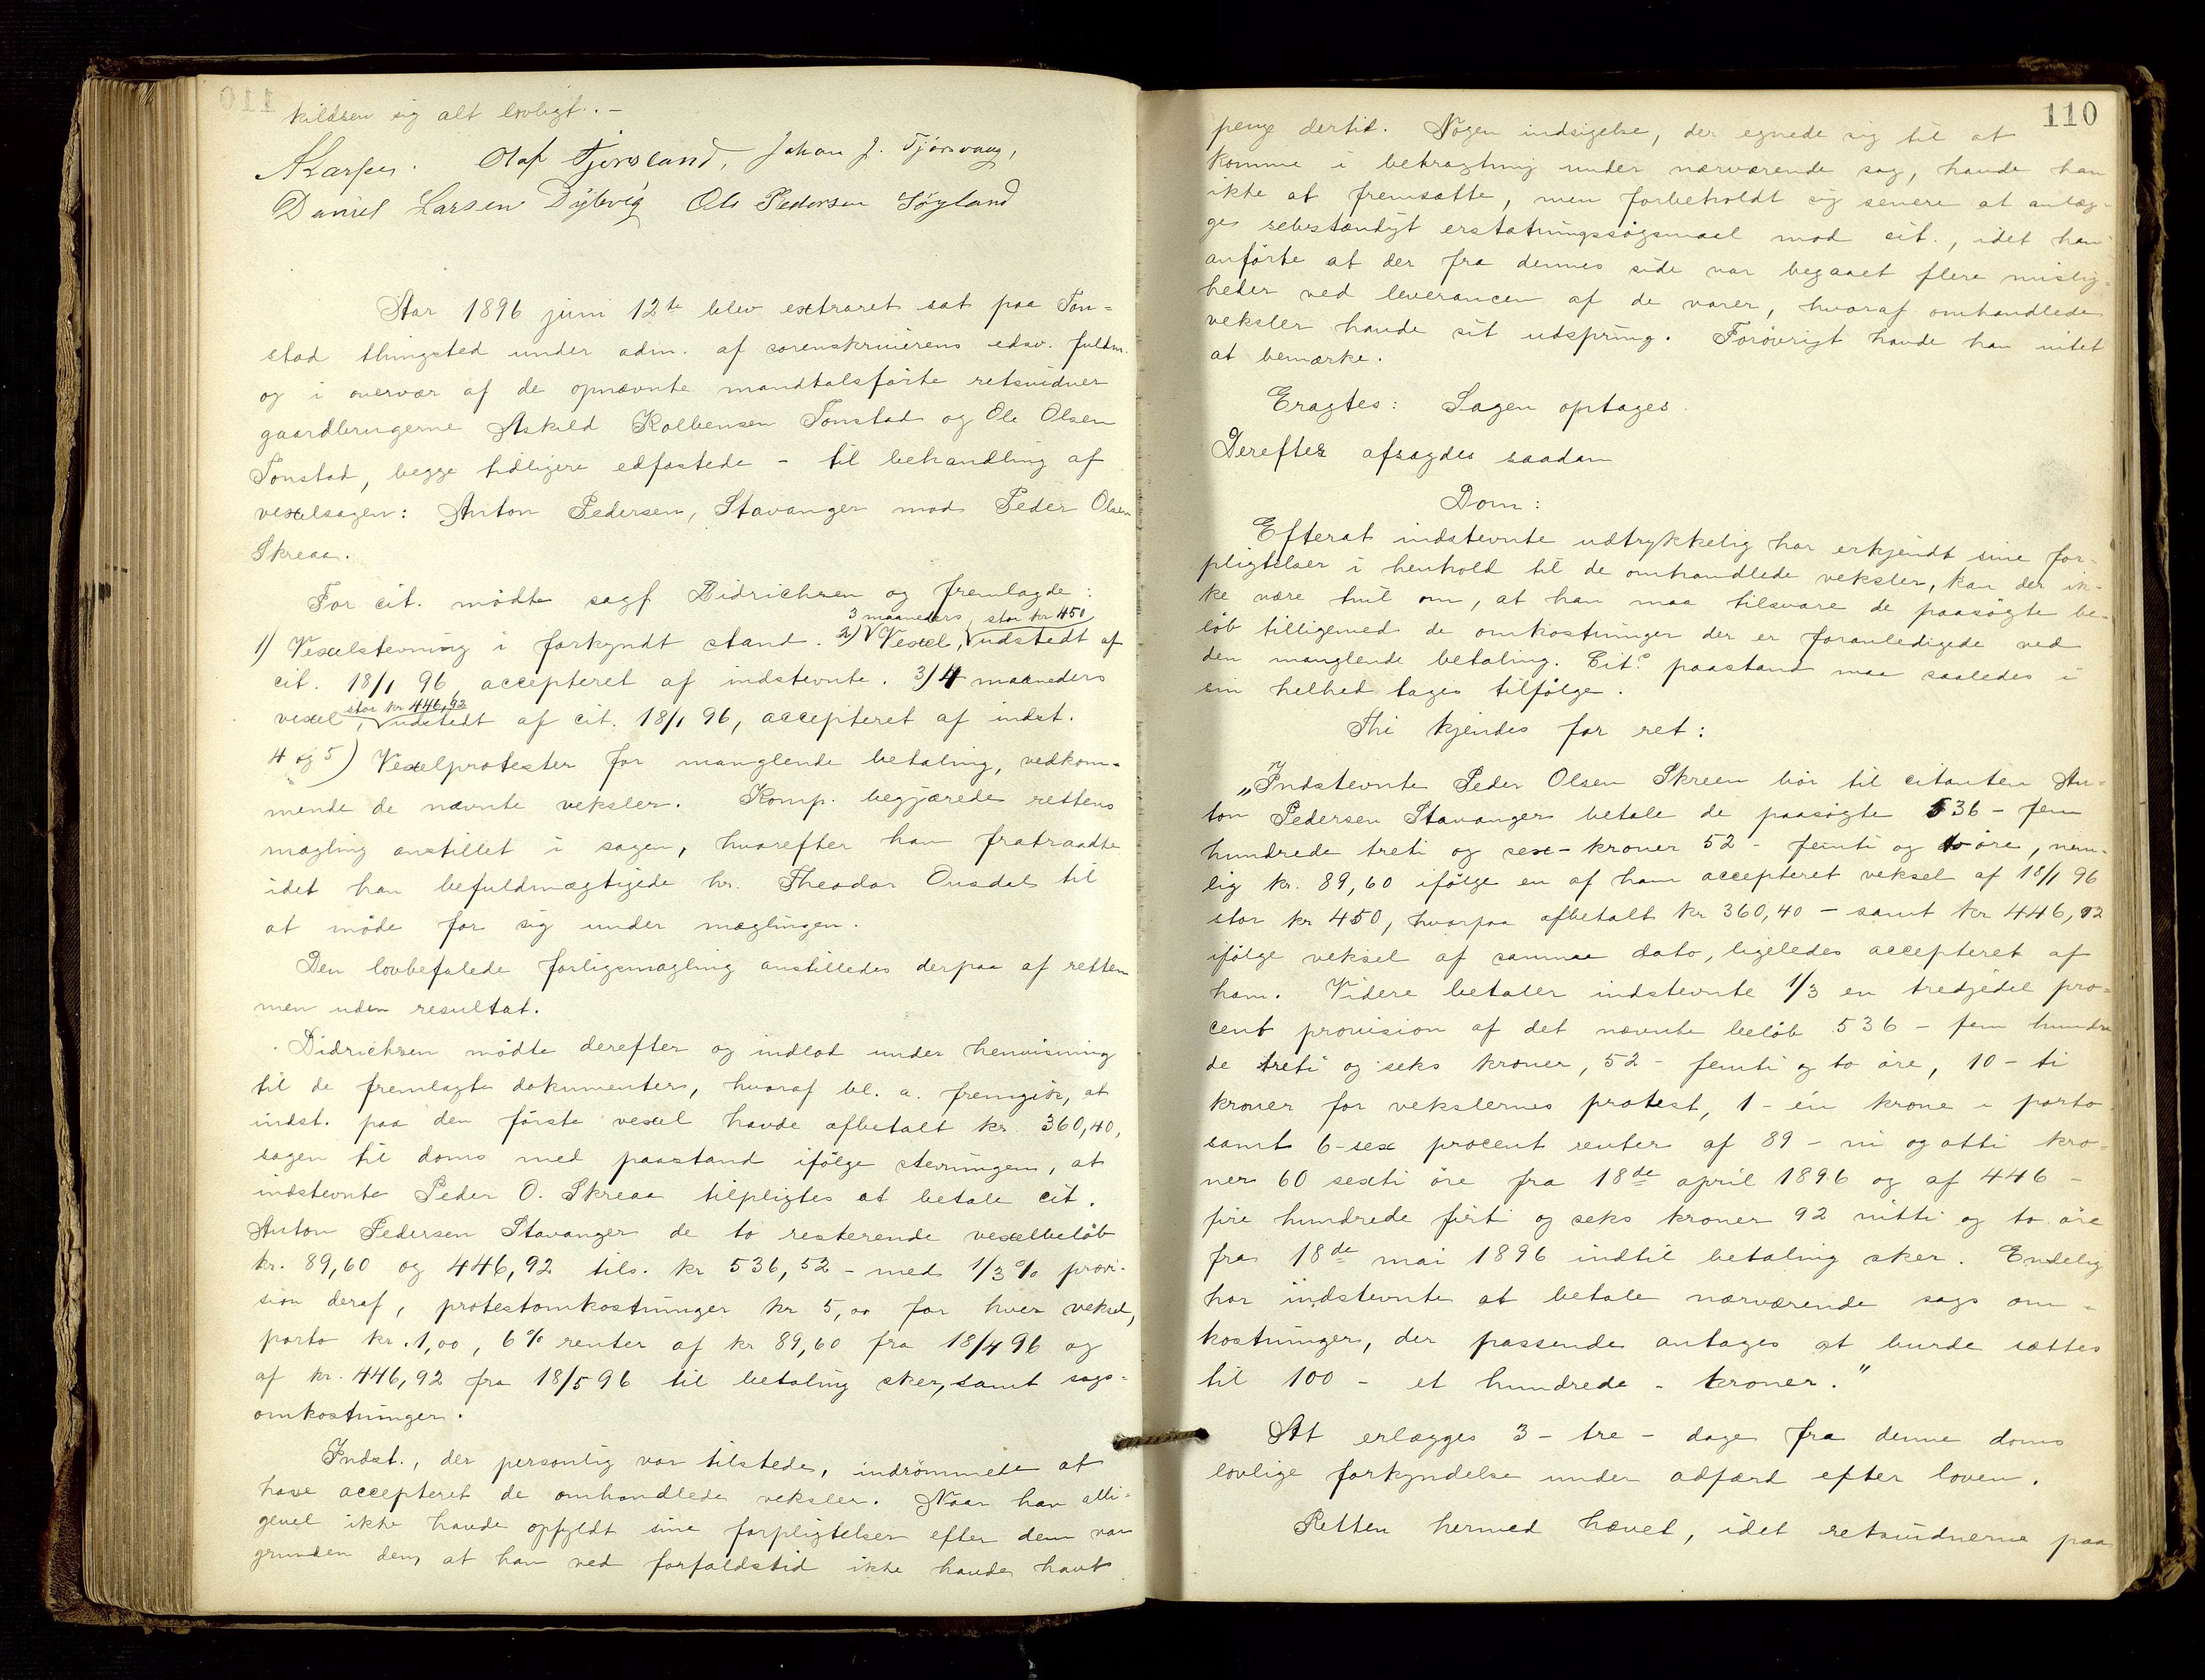 kildren sig alt lovligt. -
AKarper. Olaf Tjorsland, Johan J. Tjörsvaag,
Daniel Larsen Dybvig Ole Pedersen Söyland
Aar 1896 juni 12te blev extraret sat paa Ton-
stad thingsted under adm. af sorenskriverens edsv. fuldm.
og i overvær af de opnævnte mandtalsførte retsvidner
gaardbrugerne Askild Kolbensen Tonstad og Ole Olsen
Tonstad, begge tidligere edfæstede - til behandling af
vexelsagen: Anton Pedersen, Stavanger mod Peder Olsen
Skreaa.
For cit. mödte sagf Didrichsen og fremlagde:
3 maaneders stor kr 450
1) Vexelstevning i forkyndt stand. 2) Vexel, udstedt af
cit. 18/1 96 accepteret af indstevnte. 3) 4 maaneders
stor kr 446,92
vexel, udstedt af cit. 18/1 96, accepteret af indst.
4 og 5) Vexelprotester for manglende betaling, vedkom-
mende de nævnte veksler. Komp. begjærede rettens
mægling anstillet i sagen, hvorefter han fratraadte
idet han befuldmægtigede hr. Theodor Ousdal til
at möde for sig under mæglingen.
Den lovbefalede forligsmægling anstilledes derpaa af retten
men uden resultat.
Didrichsen mödte derefter og indlod under henvisning
til de fremlagte dokumenter, hvoraf bl. a. fremgik, at
indst. paa den förste vexel havde afbetalt kr. 360,40,
sagen til doms med paastand ifölge stevningen, at
indstevnte Peder O. Skreaa tilpligtes at betale cit.
Anton Pedersen Stavanger de to resterende vexelbelöb
kr. 89,60 og 446,92 tils. kr 536,52 - med 1/3 % provi-
sion deraf, protestomkostninger kr 5,00 for hver veksel,
porto kr. 1,00, 6 % renter af kr 89,60 fra 18/4 96 og
af kr. 446,92 fra 18/5 96 til betaling sker, samt sags-
omkostninger.
Indst., der personlig var tilstede, indrömmete at
have accepteret de omhandlede veksler. Naar han alli-
gevel ikke havde opfyldt sine forpligtelser efter dem var
grunden den, at han ved forfaldstid ikke havde havt
110
penge dertil. Nogen indsigelse, der egnede sig til at
komme i betragtning under nærværende sag, havde han
ikke at fremsætte, men forbeholdt sig senere at anlæg-
ge selvstændigt erstatningssögsmaal mod cit., idet han
anförte at der fra dennes side var begaaet flere mislig-
heder ved leverancen af de varer, hvoraf omhandlede
veksler havde sit udspring. Foröverigt havde han intet
at bemærke.
Eragtes: Sagen optages.
Derefter afsagdes saadan
Dom:
Efterat indstevnte udtrykkelig har erkjendt sine for-
pligtelser i henhold til de omhandlede veksler, kan der ik-
ke være tvil om, at han maa tilsvare de paasögte be-
löb tilligemed de omkostninger der er foranledigede ved
den manglende betaling. Cits paastand maa saaledes i
sin helhed tages tilfölge.
Thi kjendes for ret:
„Indstevnte Peder Olsen Skreen bör til citanten An-
ton Pedersen Stavanger betale de paasögte 536 - fem
hundrede treti og sex - kroner 52 - femti og to öre, nem-
lig kr. 89,60 ifölge en af ham accepteret veksel af 18/1 96
stor kr 450, hvorpaa afbetalt kr 360,40 - samt kr 446,92
ifölge veksel af samme dato, ligeledes accepteret af
ham. Videre betaler indstevnte 1/3 en tredjedel pro-
cent provision af det nævnte belöb 536 - fem hundre
de treti og seks kroner, 52 - femti og to öre, 10 - ti
kroner for vekslernes protest, 1 - én krone i porto
samt 6 - sex procent renter af 89 - ni og otti kro-
ner 60 sexti öre fra 18de april 1896 og af 446 -
fire hundrede firti og seks kroner 92 nitti og to öre
fra 18de mai 1896 indtil betaling sker. Endelig
har indstevnte at betale nærværende sags om-
kostninger, der passende antages at burde sættes
til 100 - et hundrede - kroner."
At erlægges 3 - tre - dage fra denne doms
lovlige forkyndelse under adfærd efter loven.
Retten hermed hævet, idet retsvidnerne paa